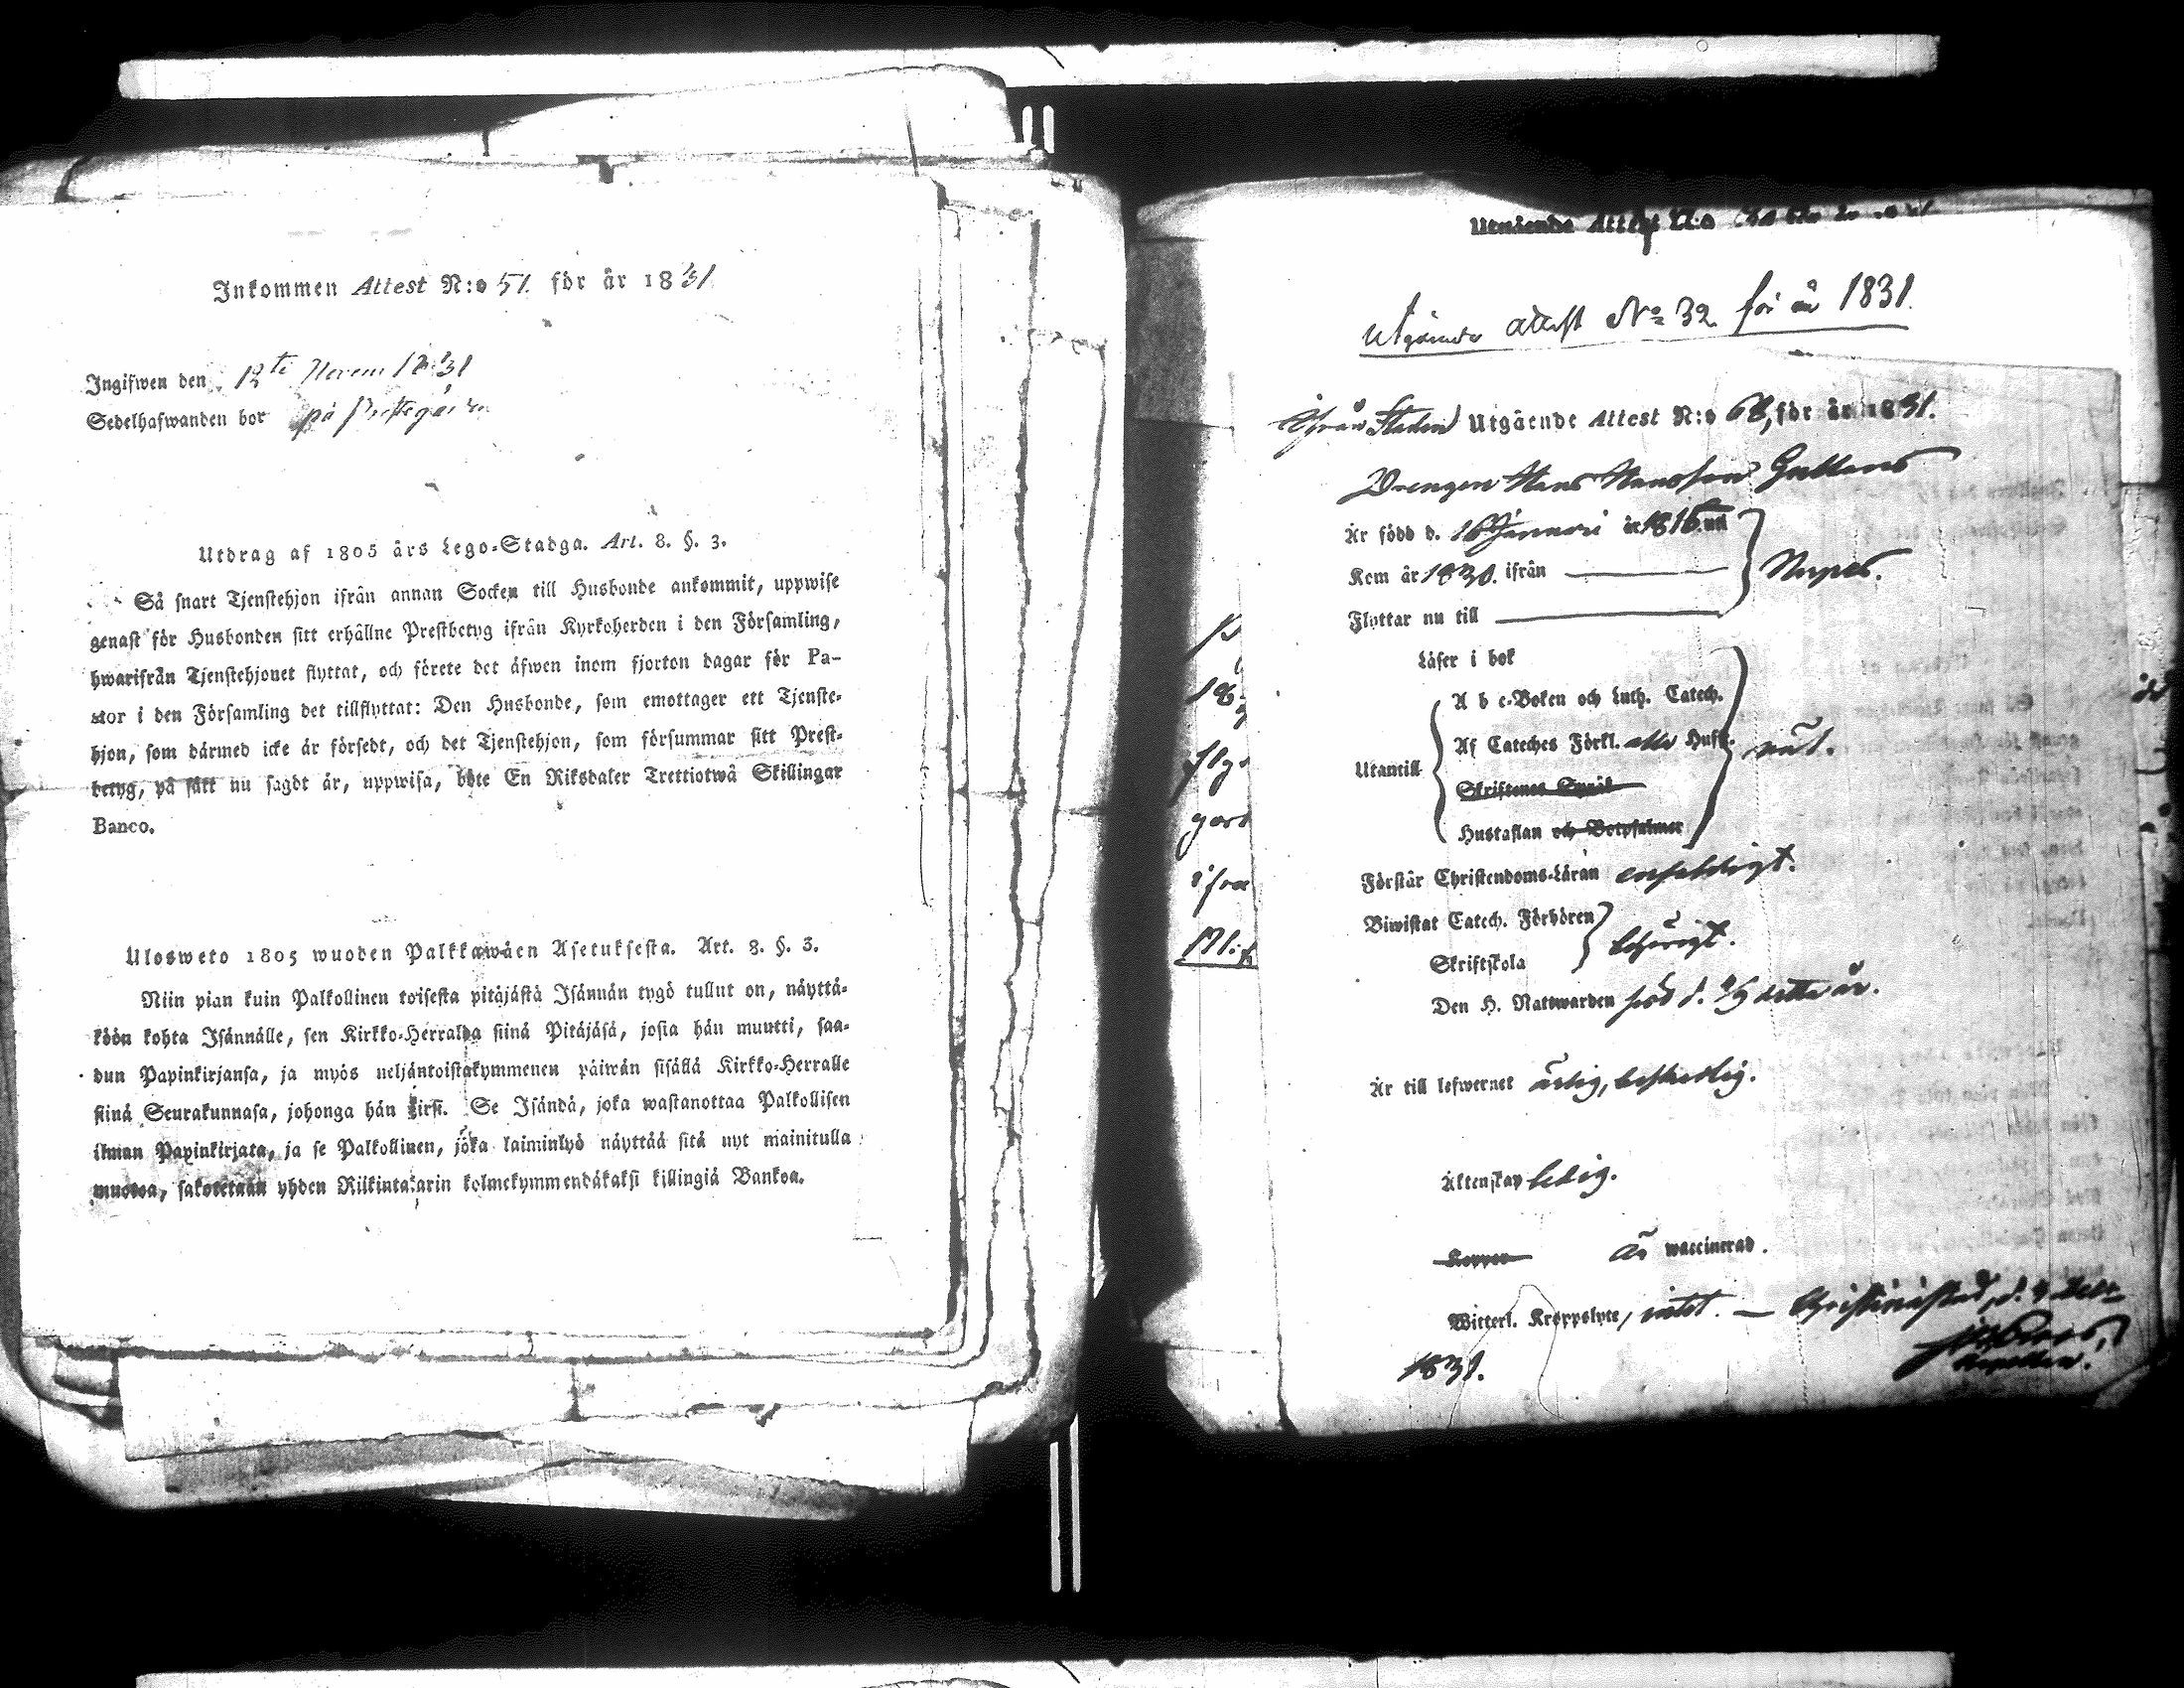 Inkommen Attest N:o 51. för år 1831
Ingifwen den 12te Novem 1831
Sedelhafwanden bor på
Utdrag af 1805 års Lego-Stadga. Art. 8. §. 3.
Så snart Tjenstehjon ifrån annan Socken till Husbonde ankommit, uppwise
genast för Husbonden sitt erhållne Prestbetyg ifrån Kyrkoherden i den Församling,
hwarifrån Tjenstehjonet flyttat, och förete det äfwen inom fjorton dagar för Pa-
stor i den Församling det tillflyttat: Den Husbonde, som emottager ett Tjenste-
hjon, som därmed icke är försedt, och det Tjenstehjon, som försummar sitt Prest-
betyg, på sätt nu sagdt är, uppwisa, böte En Riksdaler Trettiotwå Skillingar
Banco.
Ulosweto 1805 wuoden Palkkawäen Asetuksesta. Art. 8. §. 3.
Niin pian kuin Palkollinen toisesta pitäjästä Isännän tygö tullut on, näyttä-
köön kohta Isännälle, sen Kirkko-Herralda siinä Pitäjäsä, josta hän muutti, saa-
dun Papinkirjansa, ja myös neljäntoistakymmenen päiwän sisällä Kirkko-Herralle
siinä Seurakunnasa, johonga hän siirsi. Se Isändä, joka wastanottaa Palkollisen
ilman Papinkirjata, ja se Palkollinen, joka laiminlyö näyttää sitä nyt mainitulla
muotoa, sakotetaan yhden Riikintalarin kolmekymmendäkaksi killingiä Bankoa.
Utgående Attest N:o
Utgående attest No 32 för år 1831.
Ifrån Staden Utgående Attest N:o 68, för år 1831.
Drengen Hans Hansson
Är född d. 16 Januari år 1816.
Kom år 1830. ifrån
Flyttar nu till
Närpes.
Läser i bok
A b c-Boken och Luth. Catech.
Af Cateches Förkl. alla Hufst.
Utantill
nöt.
Skriftenes Språk
Hustaflan och Botpsalmer
Förstår Christendoms-Läran enfaldigt.
Biwistat Catech. Förhören
Skriftskola
behörigt.
Den H. Nattwarden d. detta år.
Är till lefwernet ärlig, beskedlig.
Äktenskap ledig.
Koppor är waccinerad.
Witterl. Kroppslyte, intet. — Christinæstad, d. 4
1831.
Kapellan.